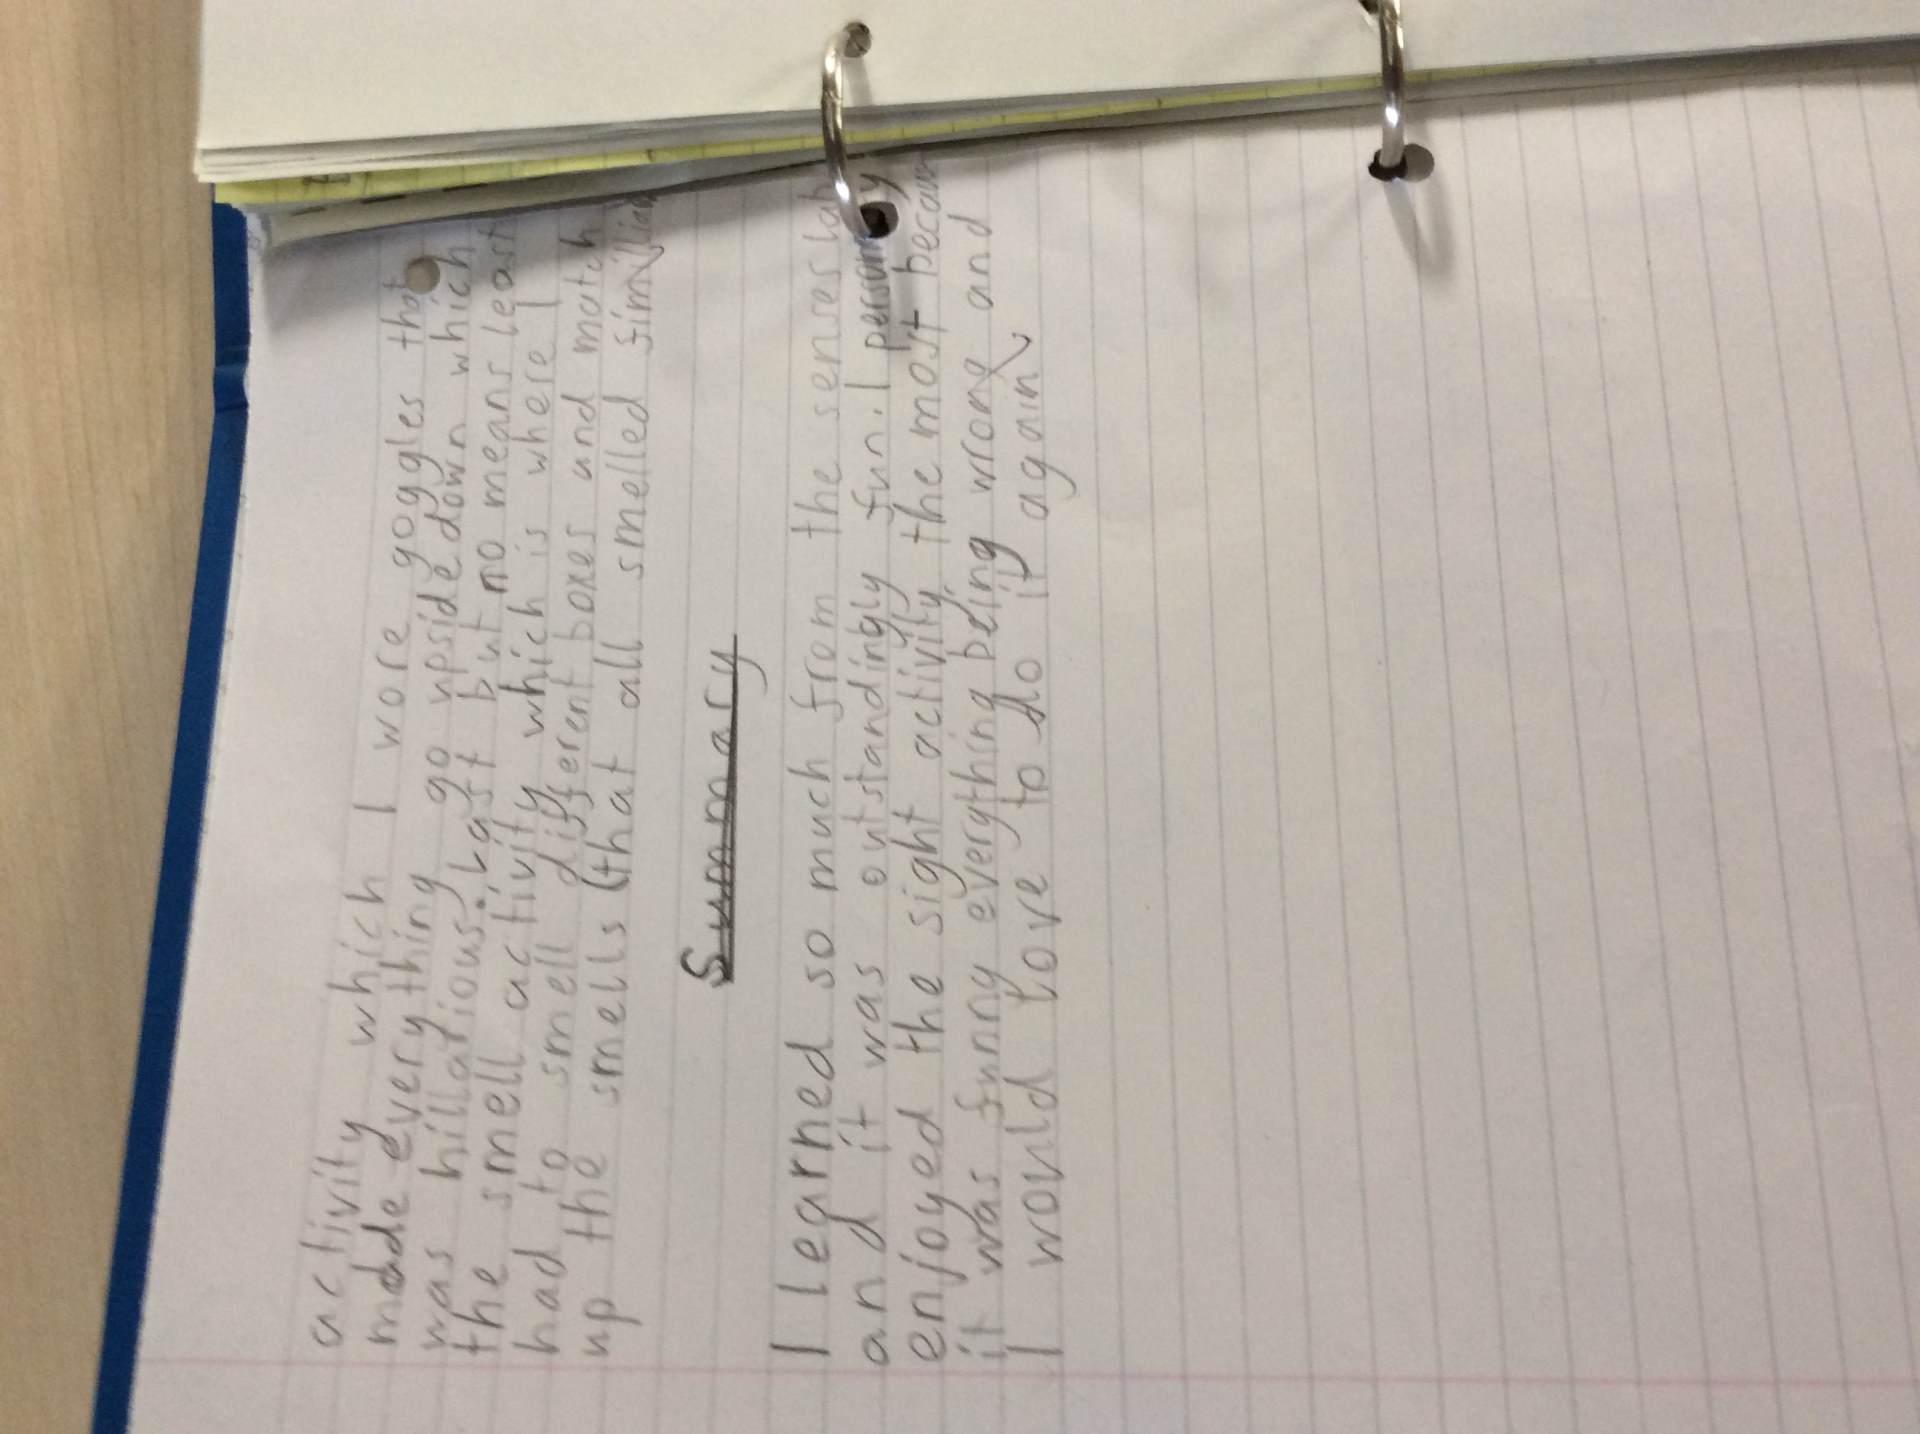 activity which I wore goggles that
made everything go upside down which
was hillarious. Last but no means least
the smell activity which is where I
had to smell different boxes and match
up the smells (that all smelled
Summary
I learned so much from the senses lab
and it was outstandingly fun. I
enjoyed the sight activity the most
it was funny everything being wrong and
I would love to do it again